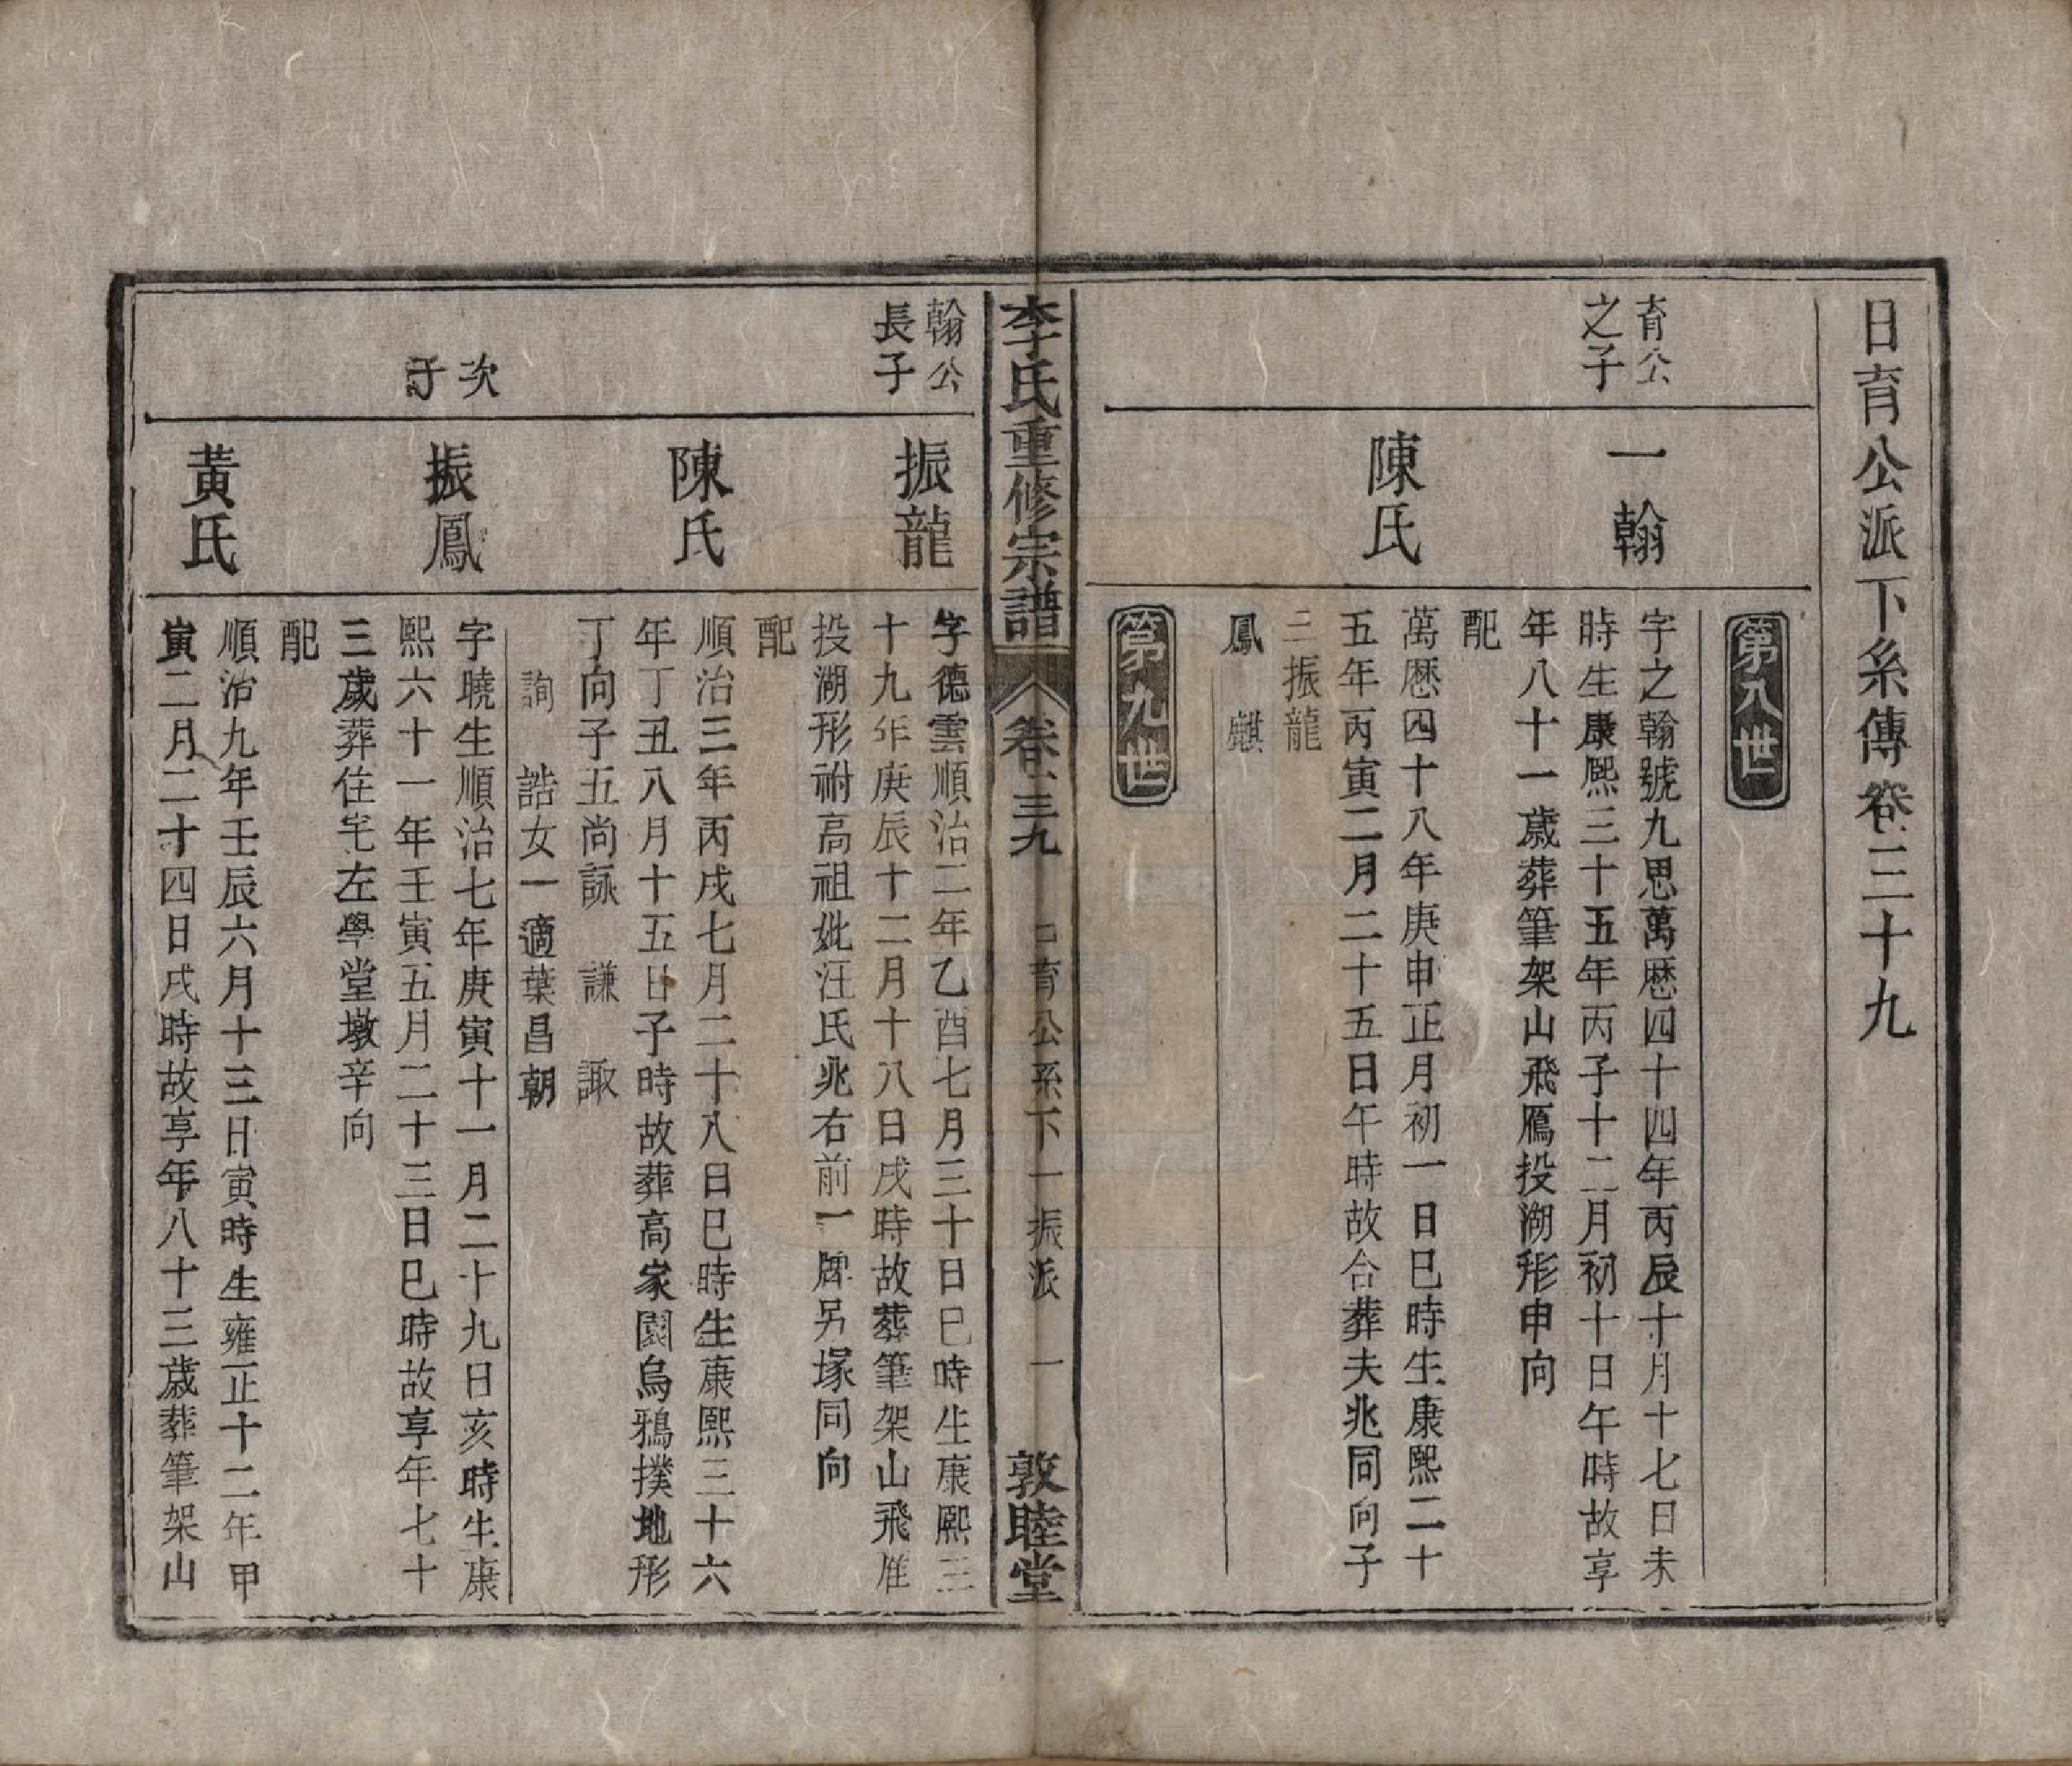 日育公派下系傳卷三十九
第八世
育公
之子
一翰
字之翰號九思萬歷四十四年丙辰十月十七日未
時生康熙三十五年丙子十二月初十日午時故享
年八十一歲葬筆架山飛鴈投湖形申向
配
陳氏
萬歷四十八年庚申正月初一日巳時生康熙二十
五年丙寅二月二十五日午時故合葬夫兆同向子
三振龍
鳳 麒
第九世
李氏重修宗譜 卷三九 日育公系下一振派 一 敦睦堂
翰公
長子
振龍
字德雲順治二年乙酉七月三十日巳時生康熙三
十九年庚辰十二月十八日戌時故葬筆架山飛雁
投湖形祔高祖妣汪氏兆右前一牌另塚同向
配
陳氏
順治三年丙戌七月二十八日巳時生康熙三十六
年丁丑八月十五日子時故葬高家園烏鴉撲地形
丁向子五尚詠 謙 諏
詢 誥女一適葉昌朝
次
子
振鳳
字曉生順治七年庚寅十一月二十九日亥時生康
熙六十一年壬寅五月二十三日巳時故享年七十
三歲葬住宅左學堂墩辛向
配
黃氏
順治九年壬辰六月十三日寅時生雍正十二年甲
寅二月二十四日戌時故享年八十三歲葬筆架山